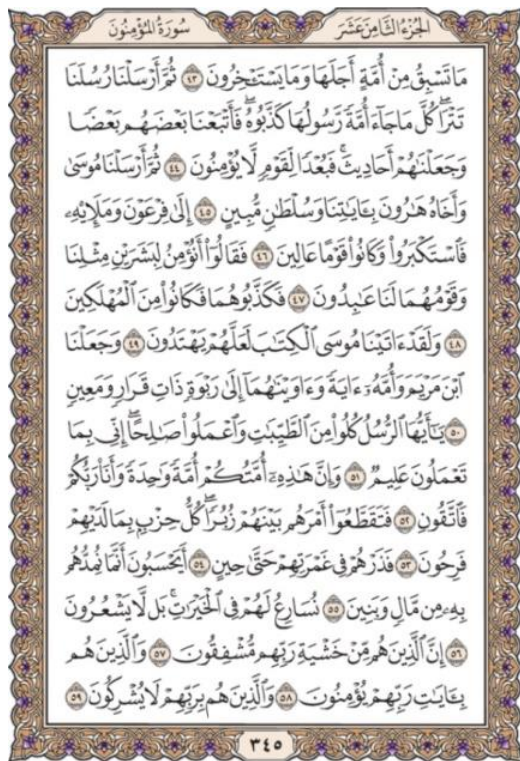 الجزء الثامن عشر
سورة المؤمنون
مَا تَسْبِقُ مِنْ أُمَّةٍ أَجَلَهَا وَمَا يَسْتَـْٔخِرُونَ ﴿٤٣﴾ ثُمَّ أَرْسَلْنَا رُسُلَنَا
تَتْرَاۖ كُلَّ مَا جَآءَ أُمَّةً رَّسُولُهَا كَذَّبُوهُۖ فَأَتْبَعْنَا بَعْضَهُم بَعْضًا
وَجَعَلْنَٰهُمْ أَحَادِيثَۚ فَبُعْدًا لِّقَوْمٍ لَّا يُؤْمِنُونَ ﴿٤٤﴾ ثُمَّ أَرْسَلْنَا مُوسَىٰ
وَأَخَاهُ هَٰرُونَ بِـَٔايَٰتِنَا وَسُلْطَٰنٍ مُّبِينٍ ﴿٤٥﴾ إِلَىٰ فِرْعَوْنَ وَمَلَإِي۟هِۦ
فَٱسْتَكْبَرُوا۟ وَكَانُوا۟ قَوْمًا عَالِينَ ﴿٤٦﴾ فَقَالُوٓا۟ أَنُؤْمِنُ لِبَشَرَيْنِ مِثْلِنَا
وَقَوْمُهُمَا لَنَا عَٰبِدُونَ ﴿٤٧﴾ فَكَذَّبُوهُمَا فَكَانُوا۟ مِنَ ٱلْمُهْلَكِينَ
﴿٤٨﴾ وَلَقَدْ ءَاتَيْنَا مُوسَى ٱلْكِتَٰبَ لَعَلَّهُمْ يَهْتَدُونَ ﴿٤٩﴾ وَجَعَلْنَا
ٱبْنَ مَرْيَمَ وَأُمَّهُۥٓ ءَايَةً وَءَاوَيْنَٰهُمَآ إِلَىٰ رَبْوَةٍ ذَاتِ قَرَارٍ وَمَعِينٍ
﴿٥٠﴾ يَٰٓأَيُّهَا ٱلرُّسُلُ كُلُوا۟ مِنَ ٱلطَّيِّبَٰتِ وَٱعْمَلُوا۟ صَٰلِحًاۖ إِنِّى بِمَا
تَعْمَلُونَ عَلِيمٌ ﴿٥١﴾ وَإِنَّ هَٰذِهِۦٓ أُمَّتُكُمْ أُمَّةً وَٰحِدَةً وَأَنَا۠ رَبُّكُمْ
فَٱتَّقُونِ ﴿٥٢﴾ فَتَقَطَّعُوٓا۟ أَمْرَهُم بَيْنَهُمْ زُبُرًاۖ كُلُّ حِزْبٍۭ بِمَا لَدَيْهِمْ
فَرِحُونَ ﴿٥٣﴾ فَذَرْهُمْ فِى غَمْرَتِهِمْ حَتَّىٰ حِينٍ ﴿٥٤﴾ أَيَحْسَبُونَ أَنَّمَا نُمِدُّهُم
بِهِۦ مِن مَّالٍ وَبَنِينَ ﴿٥٥﴾ نُسَارِعُ لَهُمْ فِى ٱلْخَيْرَٰتِۚ بَل لَّا يَشْعُرُونَ
﴿٥٦﴾ إِنَّ ٱلَّذِينَ هُم مِّنْ خَشْيَةِ رَبِّهِم مُّشْفِقُونَ ﴿٥٧﴾ وَٱلَّذِينَ هُم
بِـَٔايَٰتِ رَبِّهِمْ يُؤْمِنُونَ ﴿٥٨﴾ وَٱلَّذِينَ هُم بِرَبِّهِمْ لَا يُشْرِكُونَ ﴿٥٩﴾
٣٤٥